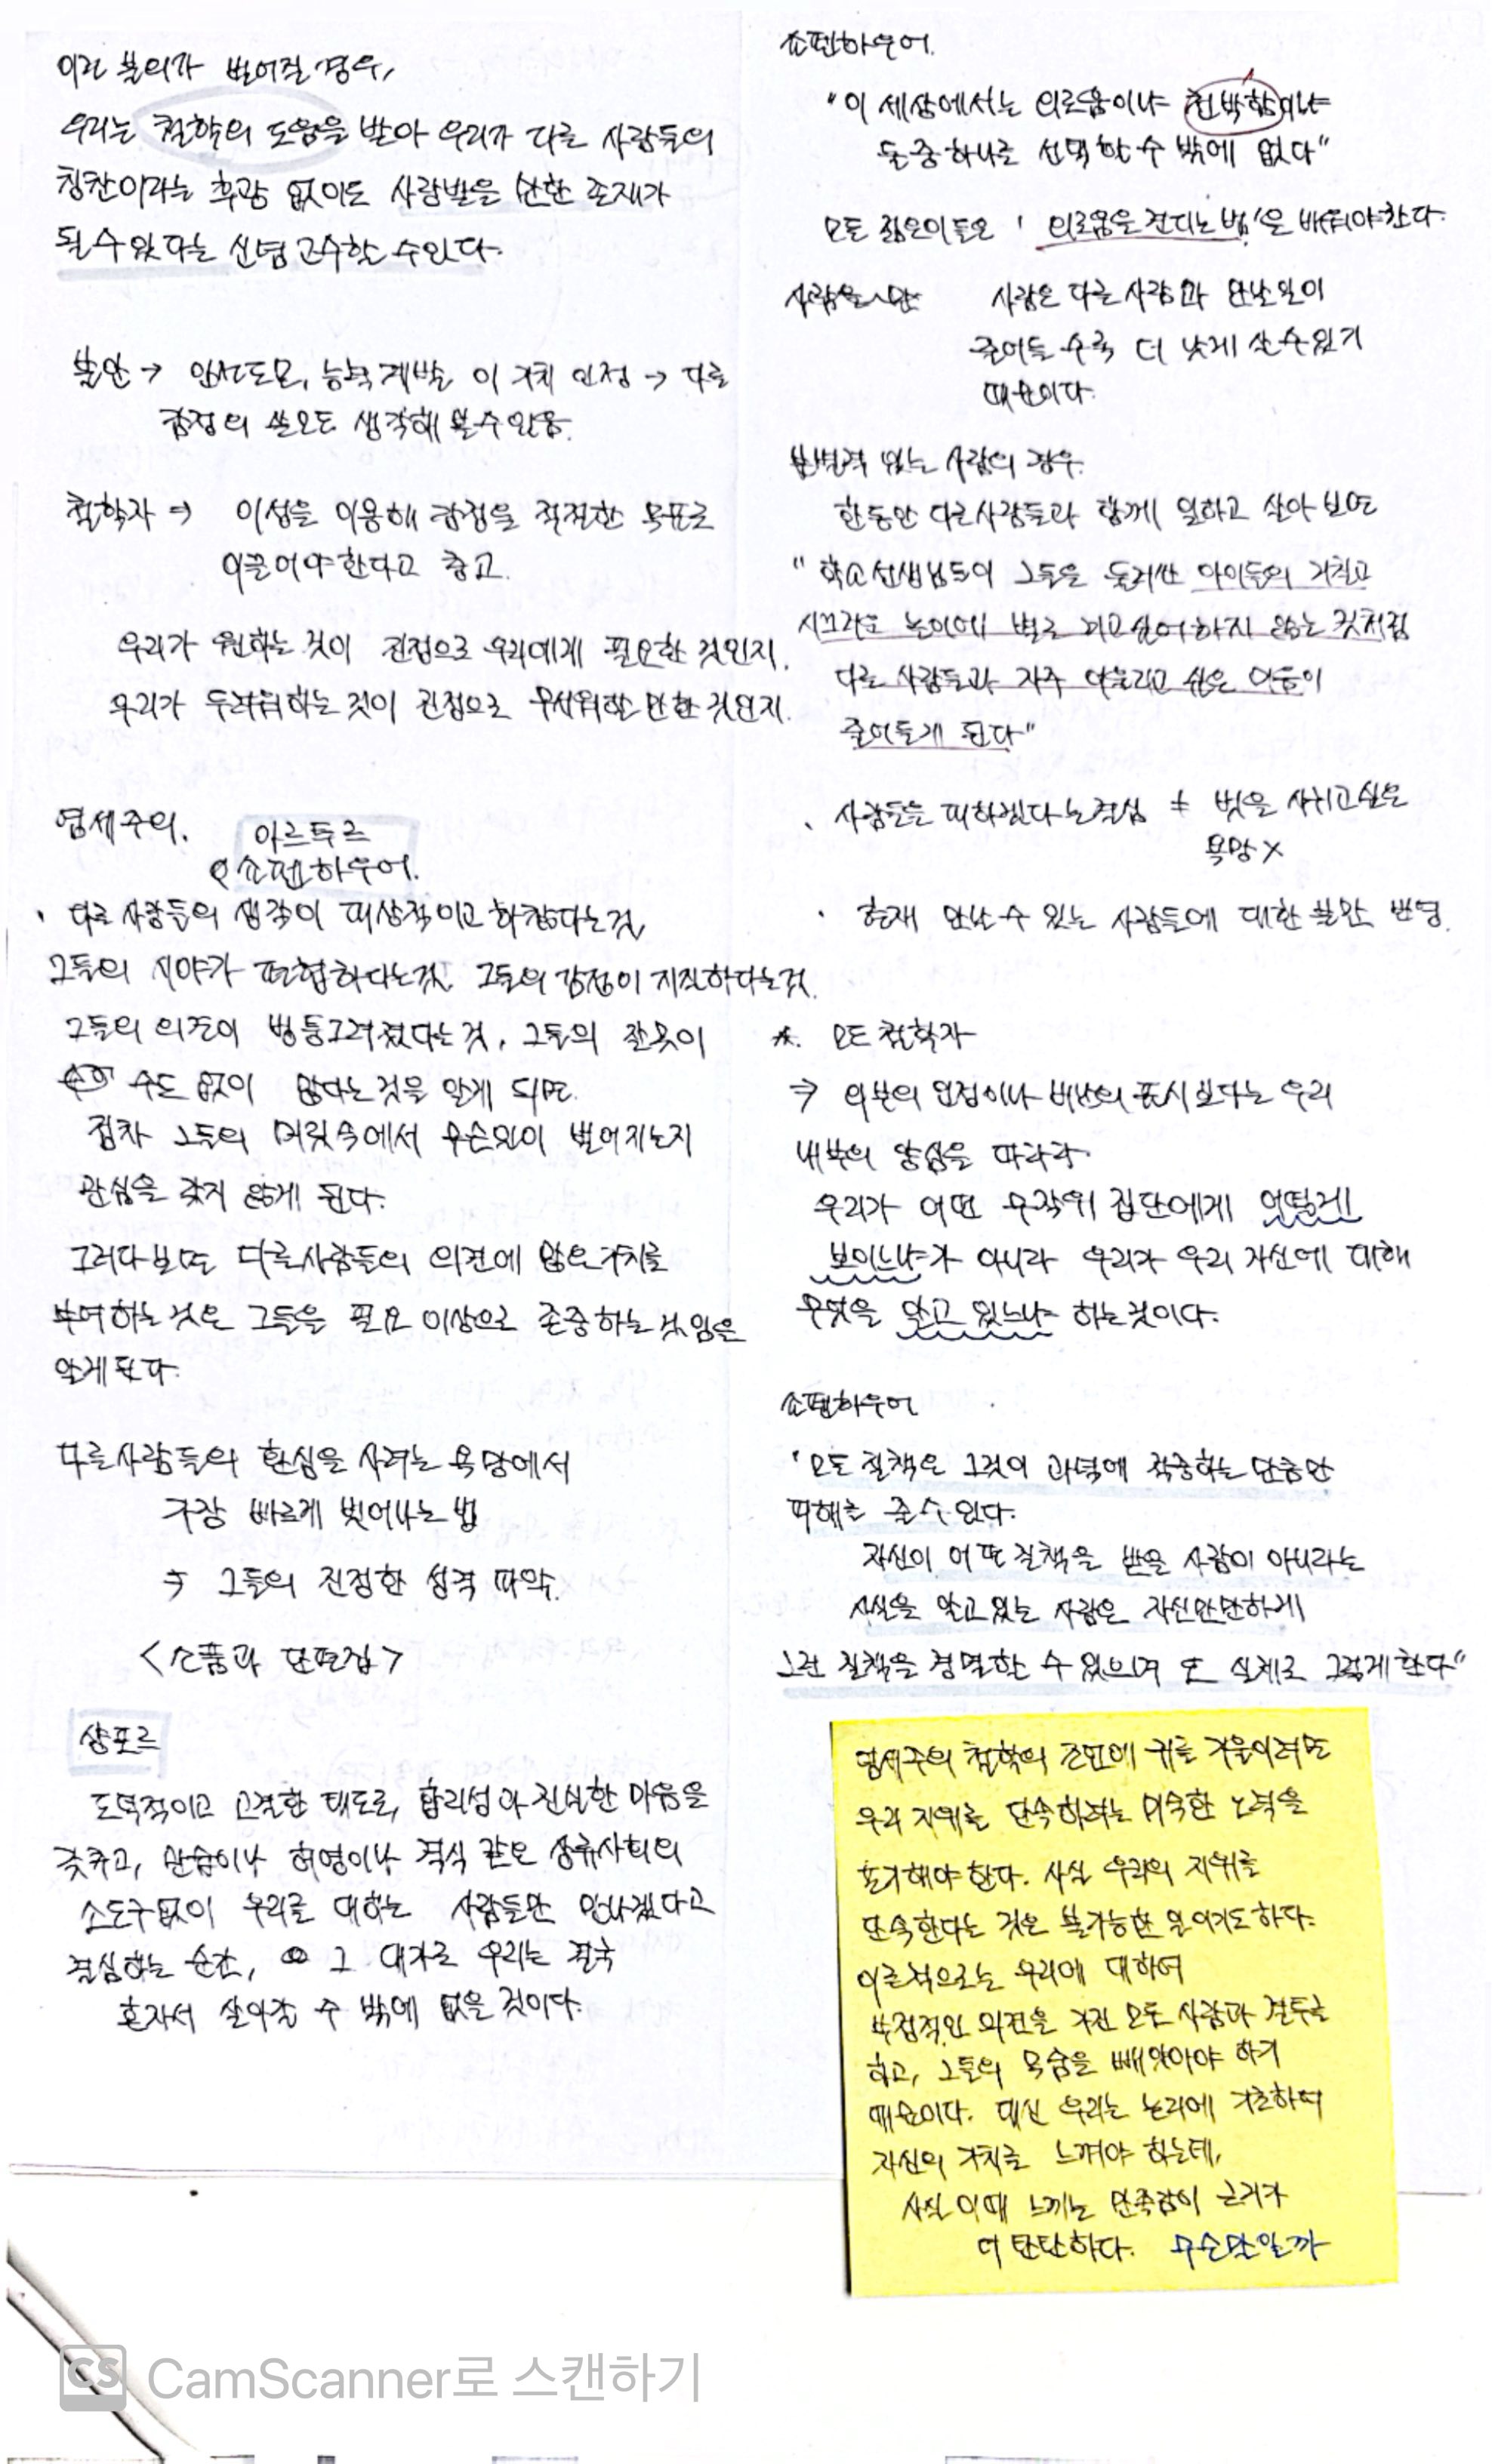 이런 불의가 벌어질 경우,
우리는 철학의 도움을 받아 우리가 다른 사람들의
칭찬이라는 후광 없이도 사랑받을 만한 존재가
될 수 있다는 신념 고수할 수 있다.
불안 → 안전도모, 능력 계발 이 가치 인정 → 다른
감정의 쓸모도 생각해 볼 수 있음.
철학자 ⇒ 이성을 이용해 감정을 적절한 목표로
이끌어야 한다고 충고.
우리가 원하는 것이 진정으로 우리에게 필요한 것인지.
우리가 두려워하는 것이 진정으로 무서워할 만한 것인지.
염세주의.
아르투르
쇼펜하우어.
· 다른 사람들의 생각이 피상적이고 하찮다는 것,
그들의 시야가 편협하다는 것, 그들의 감정이 지질하다는 것.
그들의 의견이 빙퉁그러졌다는 것, 그들의 잘못이
수도 없이 많다는 것을 알게 되면.
점차 그들의 머릿속에서 무슨 일이 벌어지는지
관심을 갖지 않게 된다.
그러다 보면 다른 사람들의 의견에 많은 가치를
부여하는 것은 그들을 필요 이상으로 존중하는 것임을
알게 된다.
다른 사람들의 환심을 사려는 욕망에서
가장 빠르게 벗어나는 법
⇒ 그들의 진정한 성격 파악.
<소품과 단편집>
샹포르
도덕적이고 고결한 태도로, 합리성과 진실한 마음을
갖추고, 관습이나 허영이나 격식 같은 상류사회의
소도구 없이 우리를 대하는 사람들만 만나겠다고
결심하는 순간, 그 대가로 우리는 결국
혼자서 살아갈 수 밖에 없을 것이다.
쇼펜하우어.
"이 세상에서는 외로움이냐 천박함이냐
둘 중 하나를 선택할 수 밖에 없다"
모든 젊은이들은 '외로움을 견디는 법'을 배워야 한다.
사람은 다른 사람과 만날 일이
줄어들 수록 더 낫게 살 수 있기
때문이다.
분별력 있는 사람의 경우.
한동안 다른 사람들과 함께 일하고 살아 보면
"학교 선생님들이 그들을 둘러싼 아이들의 거칠고
시끄러운 놀이에 별로 끼고 싶어하지 않는 것처럼
다른 사람들과 자주 어울리고 싶은 마음이
줄어들게 된다"
· 사람들을 피하겠다는 결심 ≠ 벗을 사귀고 싶은
욕망 X
· 현재 만날 수 있는 사람들에 대한 불만 반영.
*. 모든 철학자
⇒ 외부의 인정이나 비난의 표시 보다는 우리
내부의 양심을 따라라.
우리가 어떤 무작위 집단에게 어떻게
보이느냐가 아니라 우리가 우리 자신에 대해
무엇을 알고 있느냐 하는 것이다.
쇼펜하우어
"모든 질책은 그것이 과녁에 적중하는 만큼만
피해를 줄 수 있다.
자신이 어떤 질책을 받을 사람이 아니라는
사실을 알고 있는 사람은 자신만만하게
그런 질책을 경멸할 수 있으며 또 실제로 그렇게 한다"
염세주의 철학의 조언에 귀를 기울이려면
우리 지위를 단속하려는 미숙한 노력을
포기해야 한다. 사실 우리의 지위를
단속한다는 것은 불가능한 일이기도 하다.
이론적으로는 우리에 대하여
부정적인 의견을 가진 모든 사람과 결투를
하고, 그들의 목숨을 빼앗아야 하기
때문이다. 대신 우리는 논리에 기초하여
자신의 가치를 느껴야 하는데,
사실 이때 느끼는 만족감이 근거가
더 탄탄하다. 무슨 말일까
CS CamScanner로 스캔하기